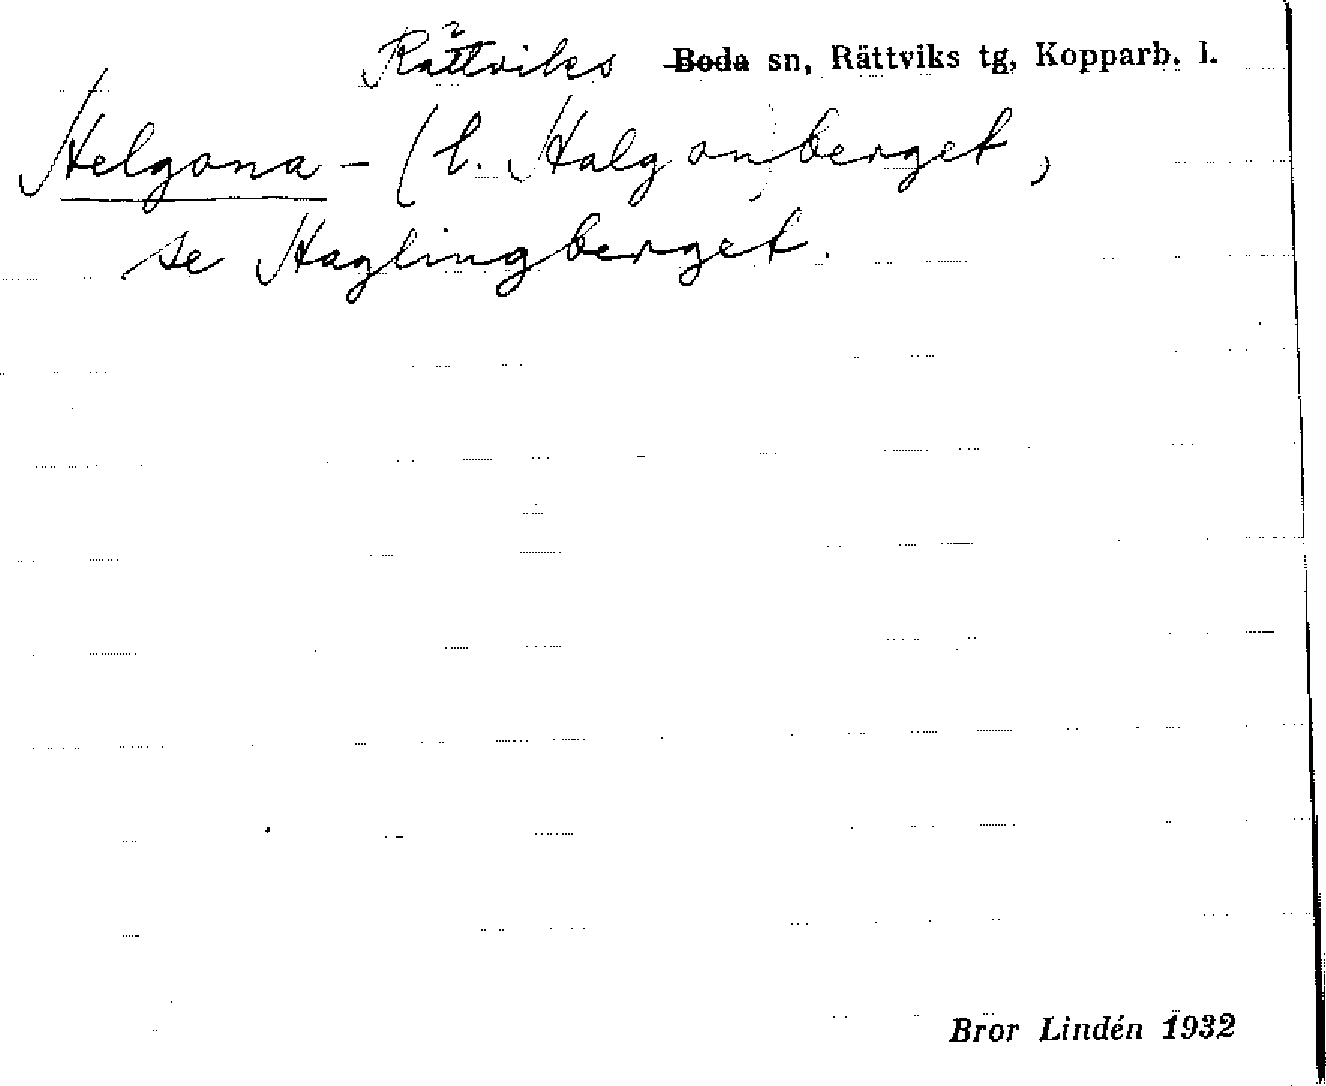 Rättviks Boda sn, Rättviks tg, Kopparb. l.
Helgona- (l. Halgon)berget,
se Haglingberget.
Bror Lindén 1932